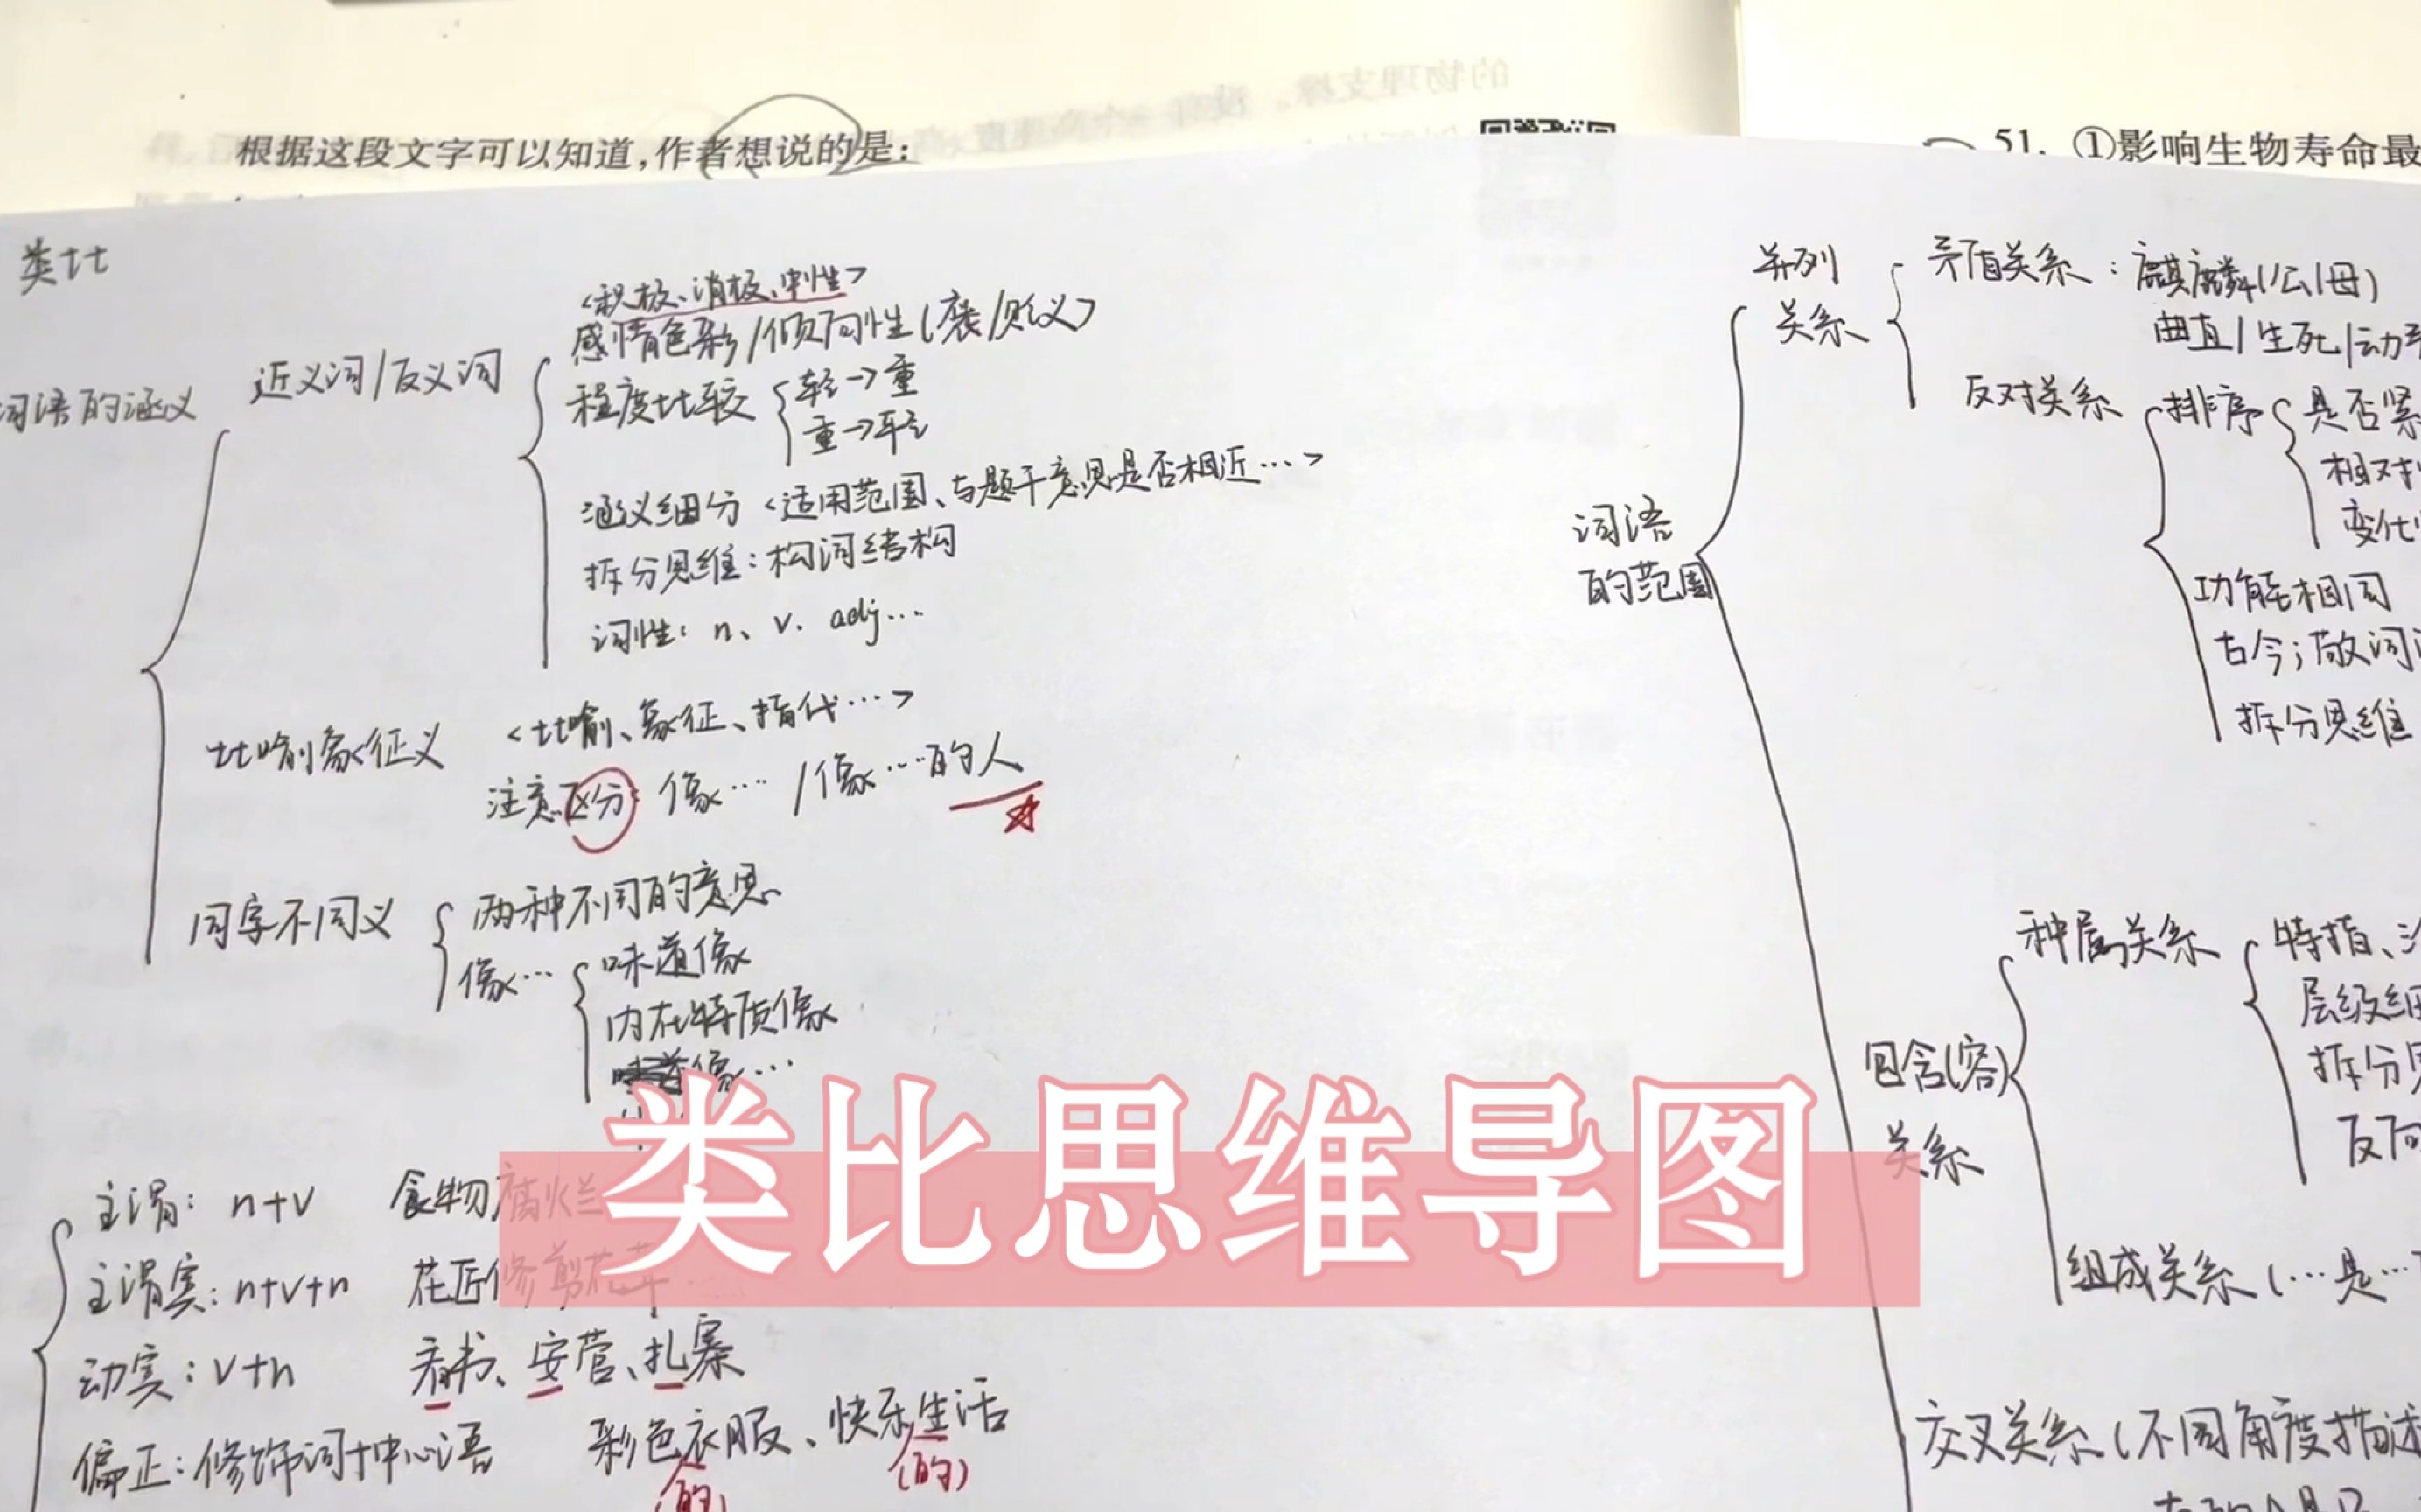 的物理支撑。
根据这段文字可以知道,作者想说的是:
51. ①影响生物寿命最
类比
词语的涵义
近义词/反义词
<积极、消极、中性>
感情色彩/倾向性(褒/贬义)
程度比较
轻→重
重→轻
涵义细分<适用范围、与题干意思是否相近…>
拆分思维:构词结构
词性:n、v. adj…
比喻象征义
<比喻、象征、指代…>
注意区分:像…/像…的人
同字不同义
两种不同的意思
像…
味道像
内在特质像
像…
主谓:n+v 食物腐烂
主谓宾:n+v+n 花匠修剪花草
动宾:v+n 看书、安营、扎寨
偏正:修饰词+中心语 彩色衣服、快乐生活
(的)
(的)
词语
的范围
并列
关系
矛盾关系:麒麟(公/母)
曲直/生死/动
反对关系
排序
是否紧
相对
变化
功能相同
古今;敬词
拆分思维
包含(容)
关系
种属关系
特指、
层级细
拆分
反向
组成关系(…是…
交叉关系(不同角度描述
类比思维导图